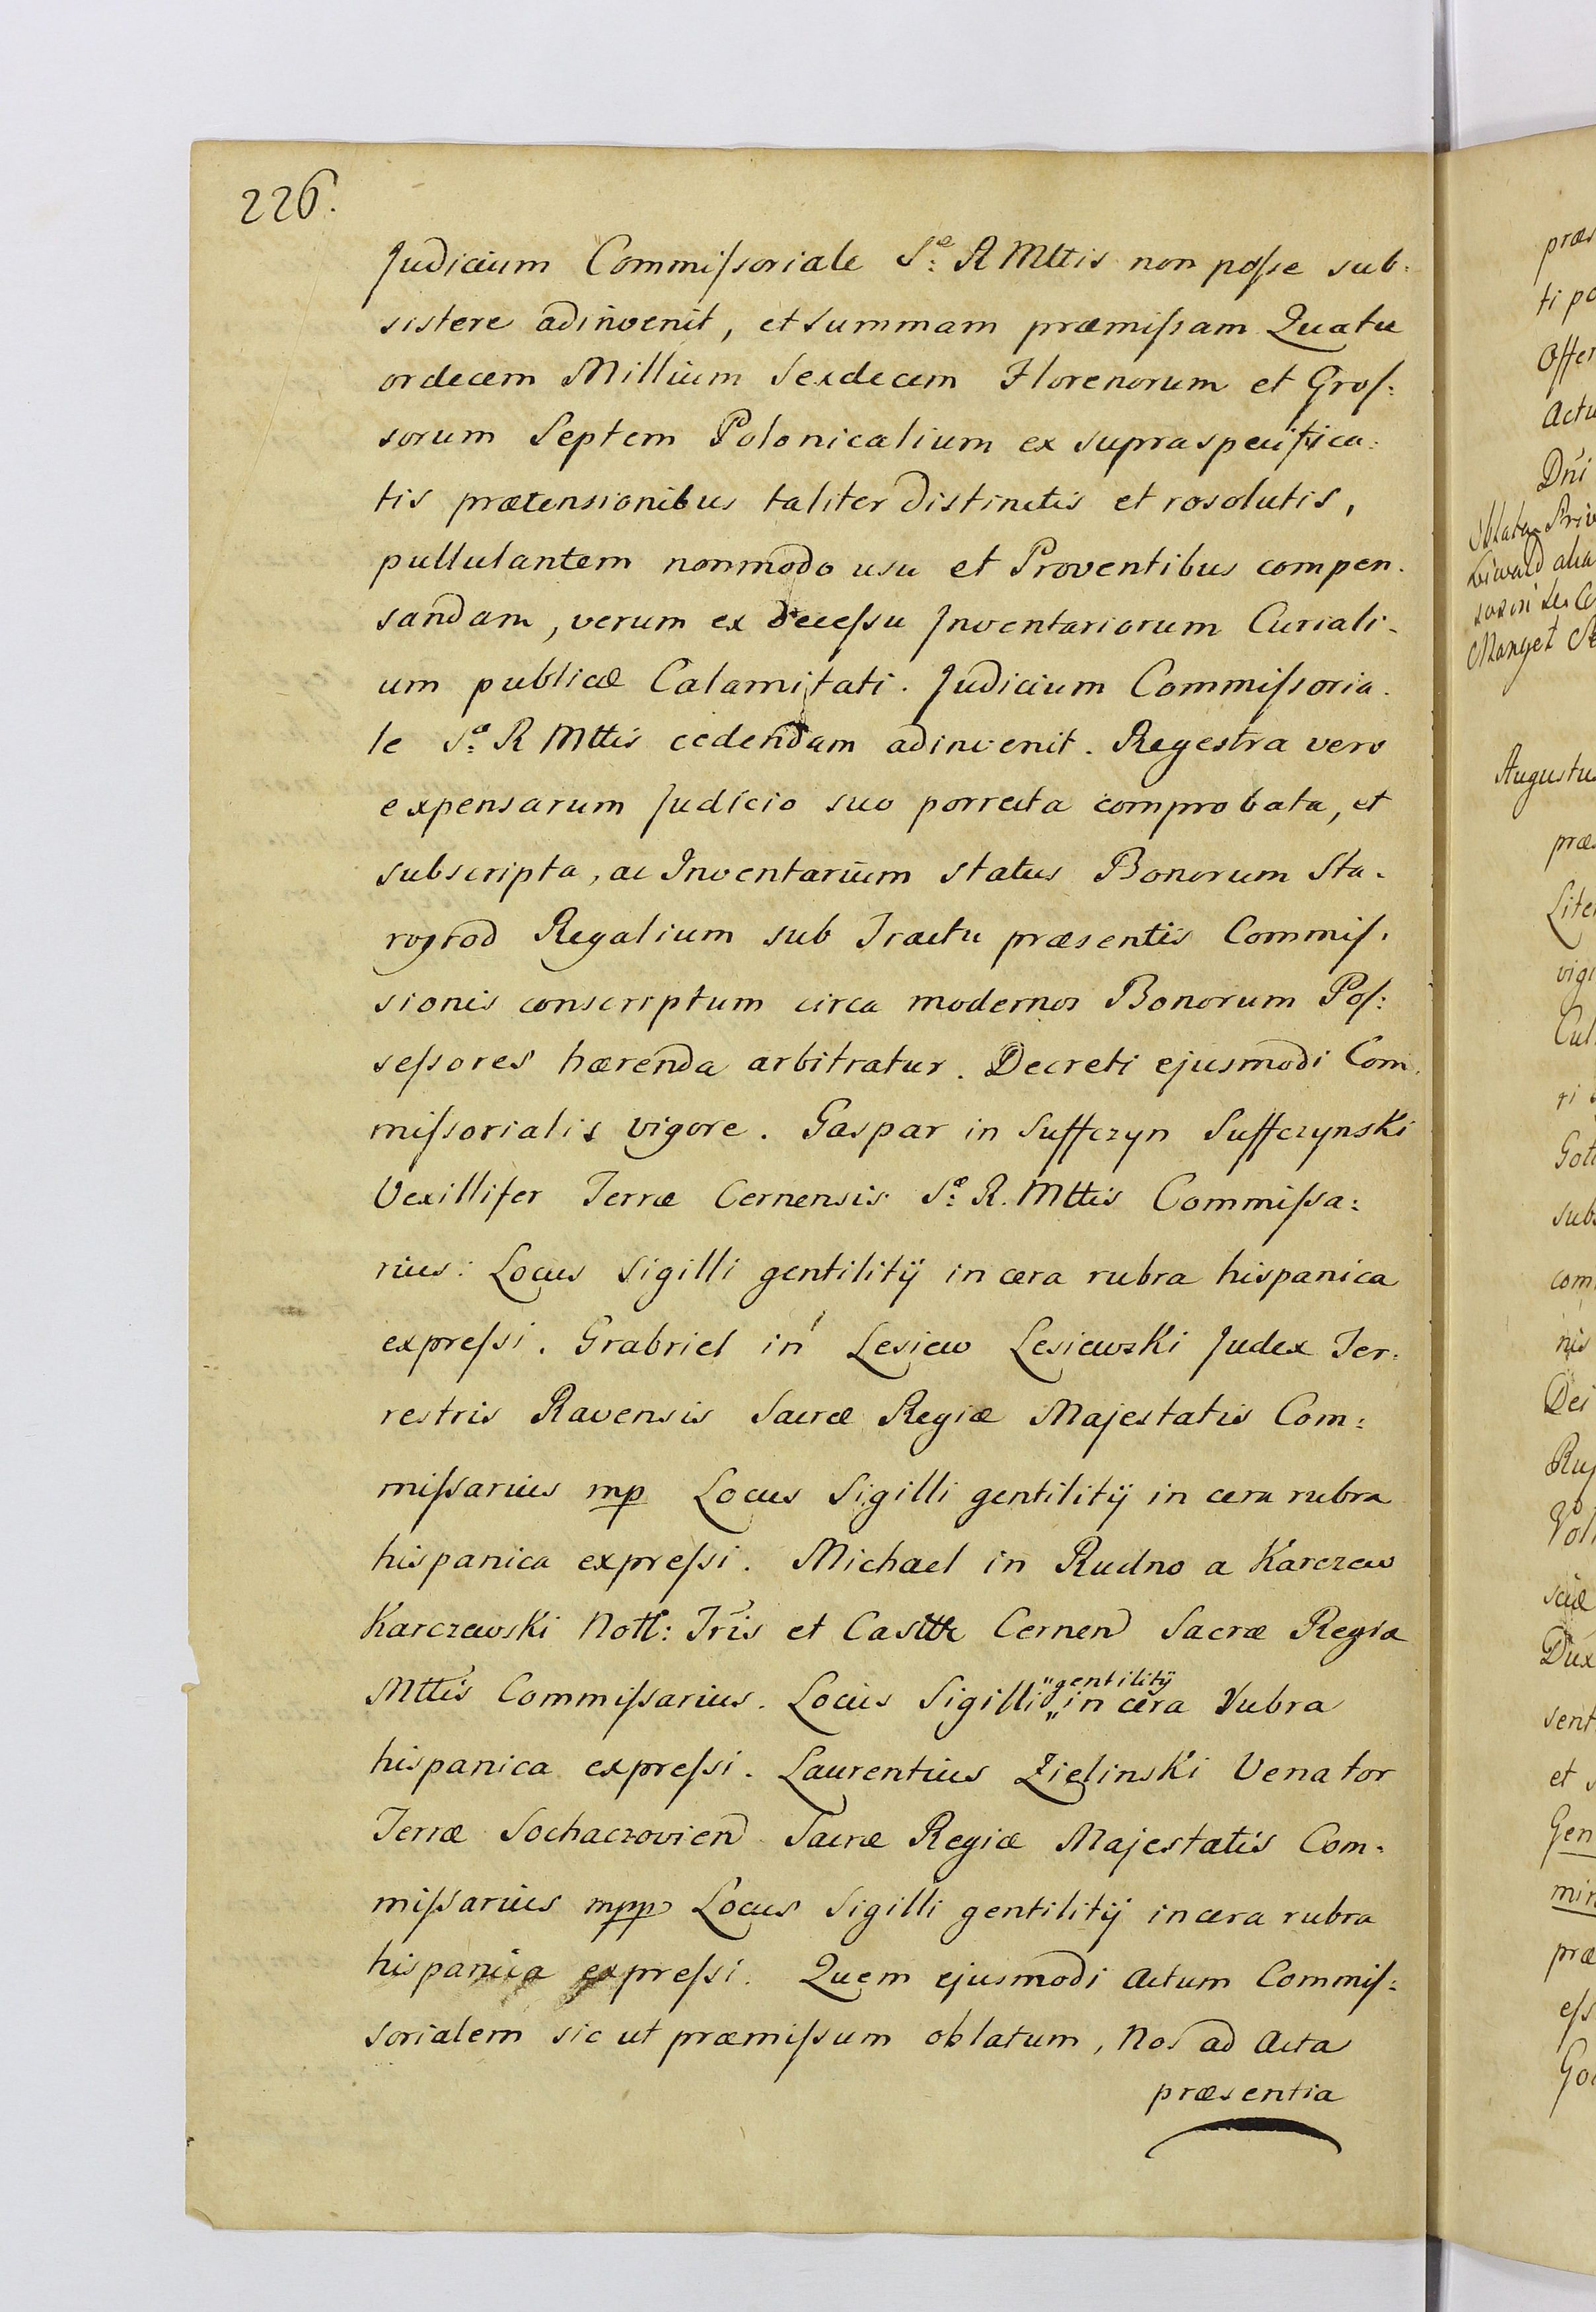 226.
Judicium Commiſsoriale S:ᵃ R Mttis non poſse sub:
sistere adinvenit, et summam præmiſsam Quatu
ordecem Millium Sexdecem Florenorum et Groſ:
sorum Septem Polonicalium ex supraspecifica:
tis prætensionibus taliter distinctis et rosolutis,
pullulantem nonmodo usu et Proventibus compen.
sandam, verum ex deceſsu Inventariorum Curiali.
um publicæ Calamitati. Judicium Commiſsoria.
le S:ᵃ R Mttis cedendam adinvenit. Regestra vero
expensarum Judicio suo porrecta comprobata, et
subscripta, ac Inventarium status Bonorum Sta.
rogrod Regalium sub Tractu præsentis Commiſ.
sionis conscriptum circa modernos Bonorum Poſ:
seſsores hærenda arbitratur. Decreti ejusmodi Com.
miſsorialis vigore. Gaspar in Suffczyn Suffczynski
Vexillifer Terræ Cernensis S:ᵃ R. Mttis Commiſsa:
rius: Locus Sigilli gentilitij in cera rubra hispanica
expreſsi. Grabriel in Lesiew Lesiewski Judex Ter.
restris Ravensis Sacræ Regiæ Majestatis Com:
miſsarius mp Locus Sigilli gentilitij in cera rubra
hispanica expreſsi. Michael in Rudno a Karczew
Karczewski Nott: Tris et Casttr Cernen Sacræ Regiæ
Mttis Commiſsarius. Locus Sigilli "gentilitij „in cera rubra
hispanica expreſsi. Laurentius Zielinski Venator
Terræ Sochaczovien Sacræ Regiæ Majestatis Com.
miſsarius mpp Locus Sigilli gentilitij in cera rubra
hispanica expreſsi. Quem ejusmodi Actum Commiſ:
sorialem sic ut præmiſsum oblatum, Nos ad Acta
præsentia
ti po
Offer
Actu
Dni
Oblata Priv
Manget
Augustus
præ
Liter
vigo
Cul
ri
Got
subs
com
nis
Dei
Rus
Vol
sciæ
Dux
sent
et s
Gen
min
præ
eſs
Go